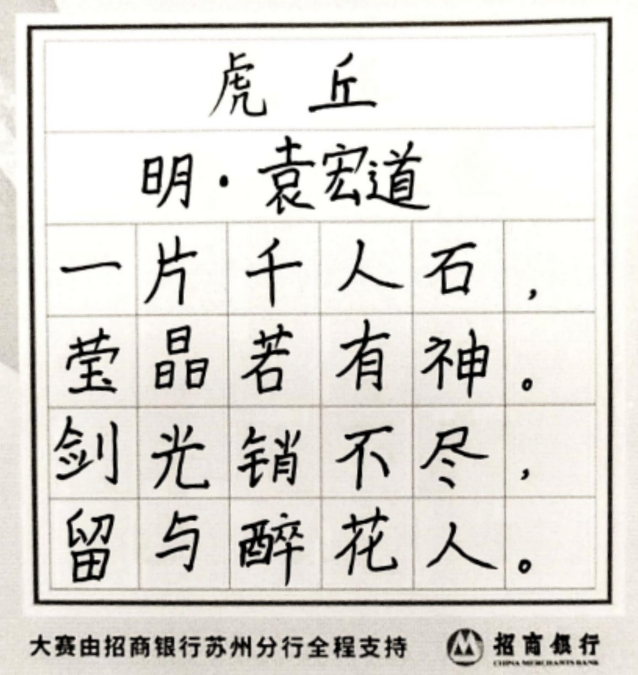 虎丘
明·袁宏道
一片千人石，
莹晶若有神。
剑光销不尽，
留与醉花人。
大赛由招商银行苏州分行全程支持
招商银行
CHINA MERCHANTS BANK